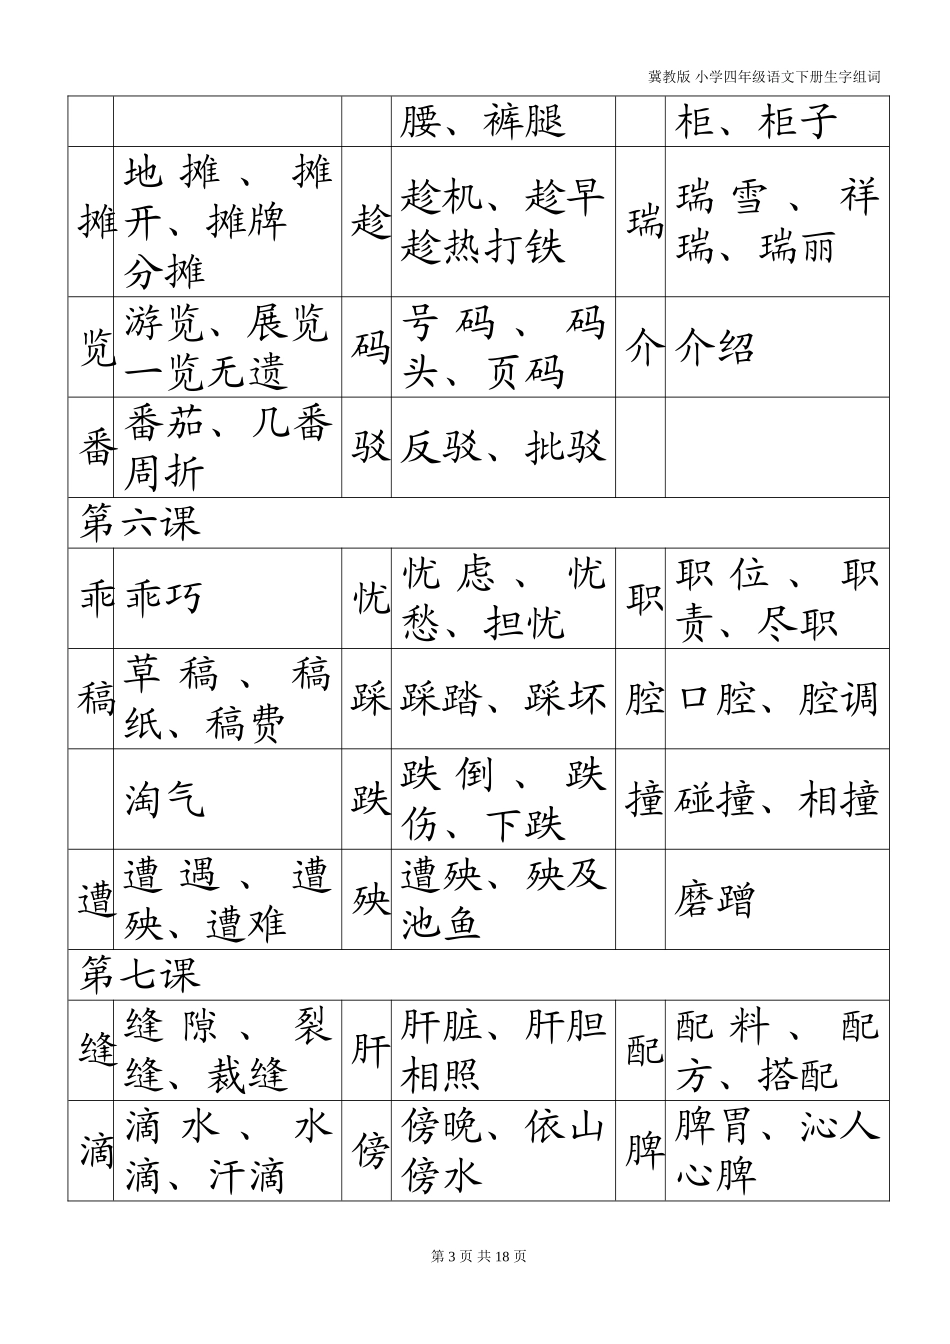 冀教版 小学四年级语文下册生字组词
腰、裤腿 柜、柜子
摊 地摊、摊开、摊牌 分摊 趁 趁机、趁早 趁热打铁 瑞 瑞雪、祥瑞、瑞丽
览 游览、展览 一览无遗 码 号码、码头、页码 介 介绍
番 番茄、几番周折 驳 反驳、批驳
第六课
乖 乖巧 忧 忧虑、忧愁、担忧 职 职位、职责、尽职
稿 草稿、稿纸、稿费 踩 踩踏、踩坏 腔 口腔、腔调
淘气 跌 跌倒、跌伤、下跌 撞 碰撞、相撞
遭 遭遇、遭殃、遭难 殃 遭殃、殃及池鱼 磨蹭
第七课
缝 缝隙、裂缝、裁缝 肝 肝脏、肝胆相照 配 配料、配方、搭配
滴 滴水、水滴、汗滴 傍 傍晚、依山傍水 脾 脾胃、沁人心脾
第 3 页 共 18 页